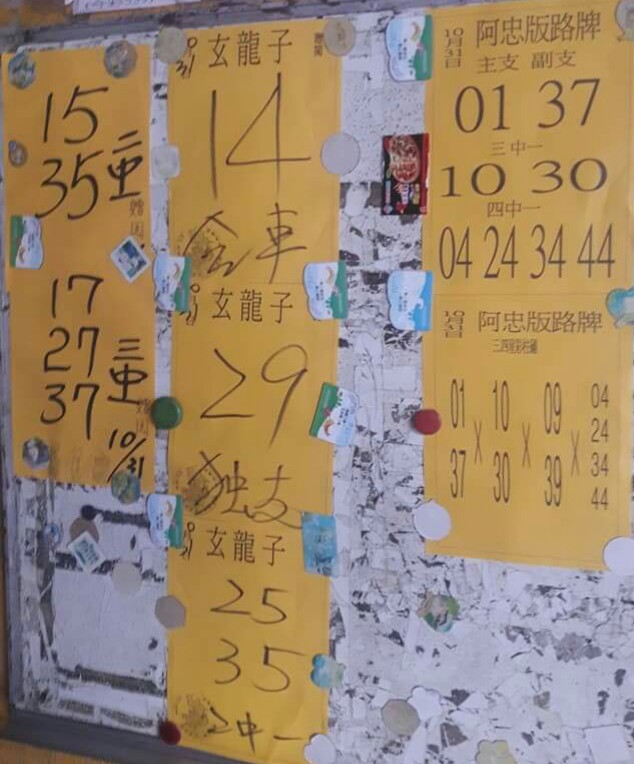 15
35
二中一
17
27
37
三中一
10/31
10/31 玄龍子
14
全車
10/31 玄龍子
29
独支
10/31 玄龍子
25
35
2中一
10月31日 阿忠版路牌
主支 副支
01 37
三中一
10 30
四中一
04 24 34 44
10月31日 阿忠版路牌
01 10 09 04
24
× × ×
34
37 30 39 44